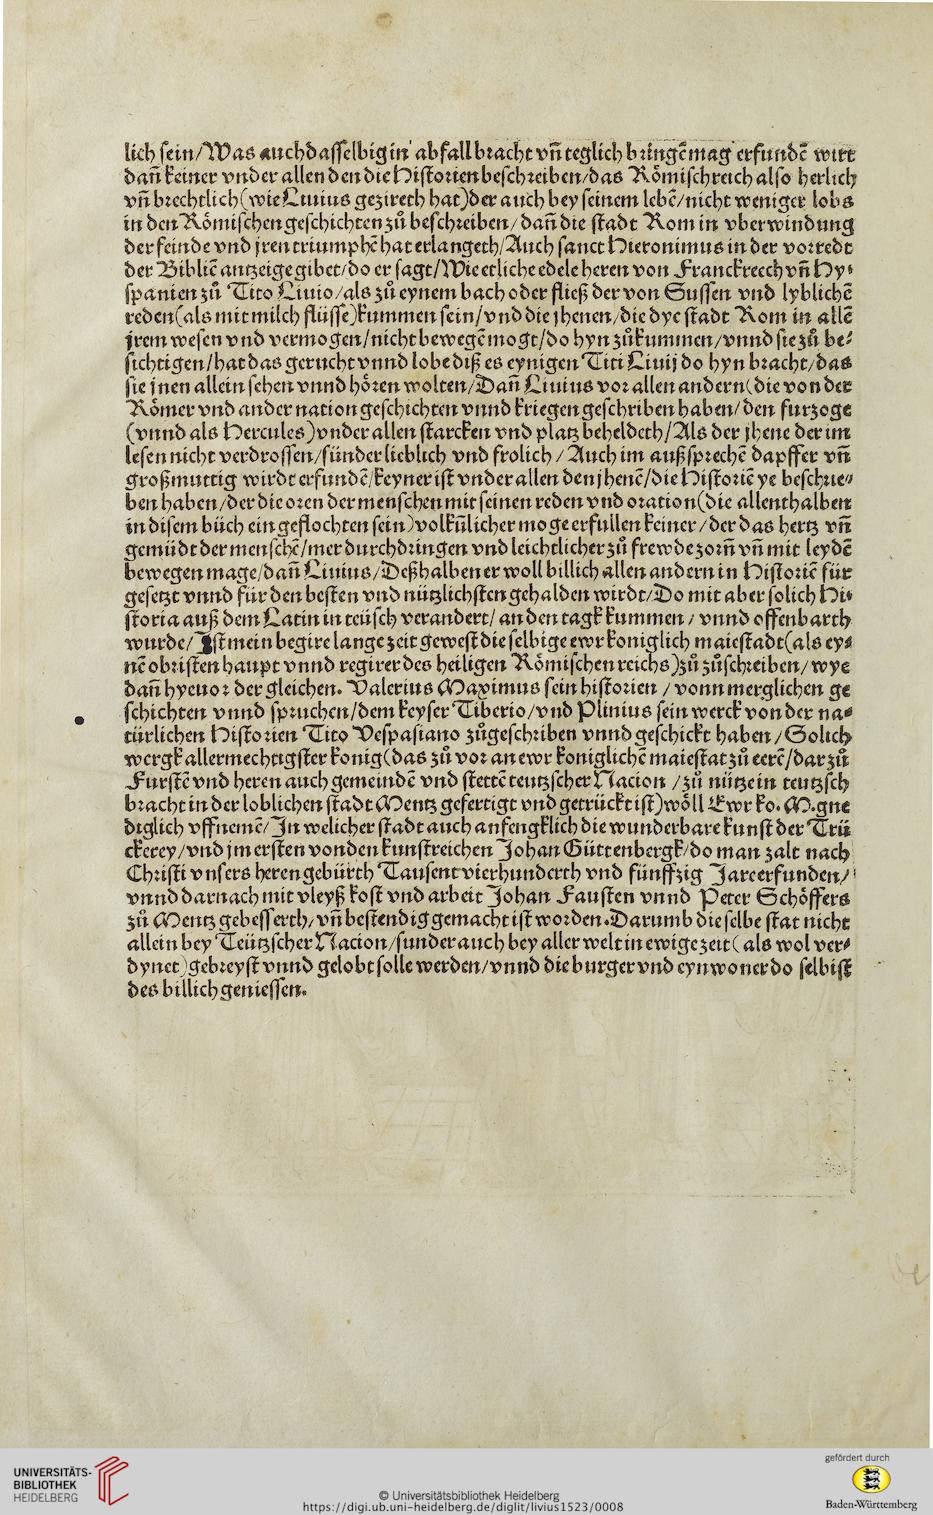 lich sein/Was auch dasselbig in abfall bracht vñ teglich bringẽ mag erfundẽ wirt
dañ keiner vnder allen den die Historien beschreiben/das Römisch reich also herlich
vñ brechtlich(wie Liuius gezireth hat)der auch bey seinem lebẽ/nicht weniger lobs
in den Römischen geschichten zů beschreiben/dañ die stadt Rom in vberwindung
der feinde vnd jren triumphẽ hat erlangeth/Auch sanct Hieronimus in der vorrede
der Bibliẽ antzeige gibet/do er sagt/Wie etliche edele heren von Franckreech vñ Hy⸗
spanien zů Tito Liuio/als zů eynem bach oder fließ der von Sussen vnd lyblichẽ
reden(als mit milch flüsse)kummen sein/vnd die jhenen/die dye stadt Rom in allẽ
jrem wesen vnd vermogen/nicht bewegẽ mogt/do hyn zůkummen/vnnd sie zů be⸗
sichtigen/hat das gerucht vnnd lobe diß es eynigen Titi Liuij do hyn bracht/das
sie jnen allein sehen vnnd hören wolten/Dañ Liuius vor allen andern(die von der
Römer vnd ander nation geschichten vnnd kriegen geschriben haben/den furzoge
(vnnd als Hercules)vnder allen starcken vnd platz beheldeth/Als der jhene der im
lesen nicht verdrossen/sünder lieblich vnd frolich/Auch im außsprechẽ dapffer vñ
großmuttig wirdt erfundẽ/keyner ist vnder allen den jhenẽ/die Historiẽ ye beschrie⸗
ben haben/der die oren der menschen mit seinen reden vnd oration(die allenthalben
in disem büch eingeflochten sein)volkũlicher moge erfullen keiner/der das hertz vñ
gemüdt der menschẽ/mer durchdringen vnd leichtlicher zů frewde zorñ vñ mit leydẽ
bewegen mage/dañ Liuius/Deßhalben er woll billich allen andern in Historiẽ für
gesetzt vnnd für den besten vnd nützlichsten gehalden wirdt/Do mit aber solich Hi⸗
storia auß dem Latin in teüsch verandert/an den tagk kummen/vnnd offenbarth
wurde/Ist mein begire lange zeit gewest dieselbige ewr koniglich maiestadt(als ey⸗
nẽ obristen haupt vnnd regirer des heiligen Römischen reichs)zů zůschreiben/wye
dañ hyeuor der gleichen. Valerius Maximus sein historien/vonn merglichen ge
schichten vnnd spruchen/dem keyser Tiberio/vnd Plinius sein werck von der na⸗
türlichen Historien Tito Vespasiano zůgeschriben vnnd geschickt haben/Solich
wergk allermechtigster konig(das zů vor an ewr koniglichẽ maiestat zů eerẽ/dar zů
Furstẽ vnd heren auch gemeindẽ vnd stettẽ teutzscher Nacion/zů nütze in teutzsch
bracht in der loblichen stadt Mentz gefertigt vnd getrückt ist)wöll Ewr ko. M. gne
diglich vffnemẽ/In welicher stadt auch anfengklich die wunderbare kunst der Trü
ckerey/vnd jm ersten von den kunstreichen Johan Güttenbergk/do man zalt nach
Christi vnsers heren gebürth Tausent vierhunderth vnd fünffzig Jare erfunden/
vnnd darnach mit vleyß kost vnd arbeit Johan Fausten vnnd Peter Schöffers
zů Mentz gebesserth/vñ bestendig gemacht ist worden. Darumb dieselbe stat nicht
allein bey Teützscher Nacion/sunder auch bey aller welt in ewige zeit(als wol ver⸗
dynet)gebreyst vnnd gelobt solle werden/vnnd die burger vnd eynwoner do selbist
des billich geniessen.
UNIVERSITÄTS-
BIBLIOTHEK
HEIDELBERG
© Universitätsbibliothek Heidelberg
https://digi.ub.uni-heidelberg.de/diglit/livius1523/0008
gefördert durch
Baden-Württemberg